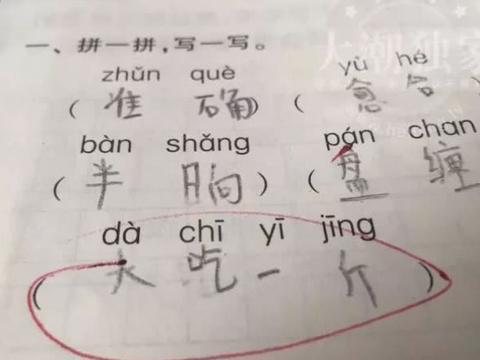 一、拼一拼，写一写。
zhǔn què yù hé
（准 确）（愈 合
bàn shǎng pán chan
（半 晌）（盘 缠
dà chī yī jīng
（大 吃 一 斤）
大潮独家